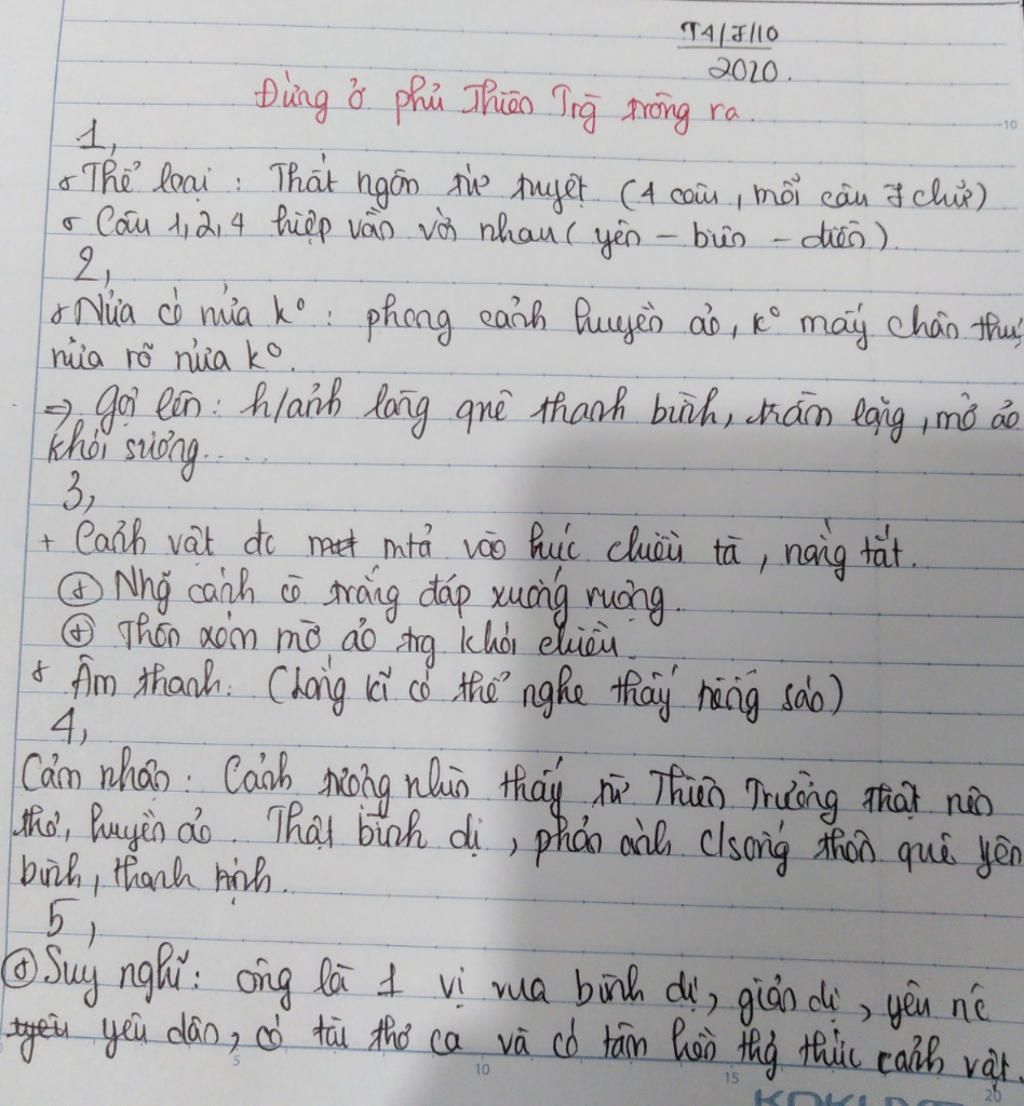 T4/7/10
2020.
Đứng ở phủ Thiên Trg trông ra.
1,
+ Thể loại : Thất ngôn tứ tuyệt (4 câu, mỗi câu 7 chữ)
+ Câu 1, 2, 4 hiệp vần với nhau (yên - biên - điền).
2,
+ Nửa có nửa k° : phong cảnh huyền ảo, k° mấy chân thực
nửa rõ nửa k°.
=> gợi lên : h/ảnh làng quê thanh bình, trầm lặng, mờ ảo
khói sương.....
3,
+ Cảnh vật đc mtả vào lúc chiều tà, nắng tắt.
+ Nhg cánh cò trắng đáp xuống ruộng.
+ Thôn xóm mờ ảo trg khói chiều.
+ Âm thanh : (Lắng kĩ có thể nghe thấy tiếng sáo)
4,
Cảm nhận : Cảnh tượng nhìn thấy từ Thiên Trường thật nên
thơ, huyền ảo. Thật bình dị, phản ánh c/sống thôn quê yên
bình, thanh tịnh.
5,
+ Suy nghĩ : ông là 1 vị vua bình dị, giản dị, yêu nc
yêu dân, có tài thơ ca và có tâm hồn thg thức cảnh vật.
5
10
15
20
10